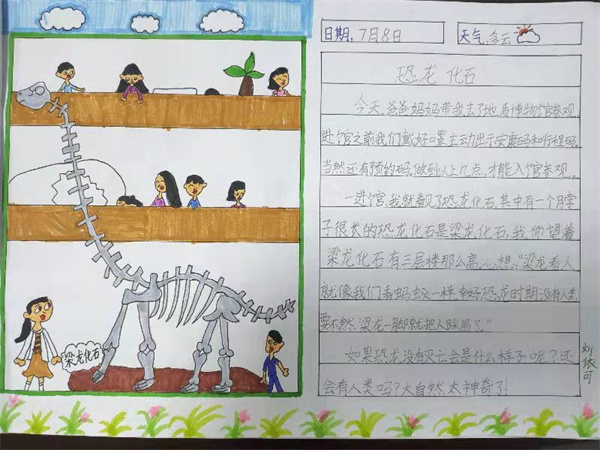 日期：7月8日
天气：多云
恐龙化石
今天，爸爸妈妈带我去了地质博物馆参观，
进馆之前我们戴好口罩主动出示安康码和行程码，
当然还有预约码，做到以上几点，才能入馆参观。
一进馆，我就看见了恐龙化石，其中有一个
子很大的恐龙化石是梁龙化石，我仰望着
梁龙化石有三层楼那么高，心想：“梁龙看人
就像我们看蚂蚁一样，幸好恐龙时期没有人类，
要不然，梁龙一脚就把人踩扁了。”
如果恐龙没有灭亡会是什么样子呢？还
会有人类吗？大自然太神奇了！
刘依可
梁龙化石